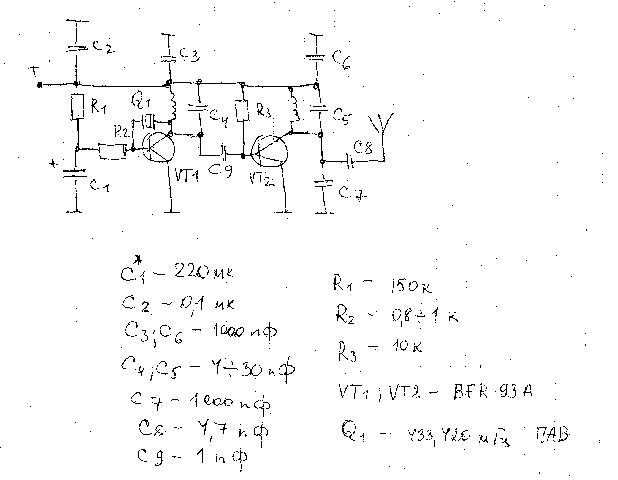 C2
C3
C6
T
R1
Q1
R2
C4
R3
C5
C8
*
C1
VT1
C9
VT2
C7
C1* - 220 мк
C2 - 0,1 мк
C3; C6 - 1000 пФ
C4, C5 - 4÷30 пФ
C7 - 1000 пФ
C8 - 4,7 пФ
C9 - 1 пФ
R1 - 150к
R2 - 0,8÷1 к
R3 - 10к
VT1; VT2 - BFR 93A
Q1 - 433,420 мГц ПАВ